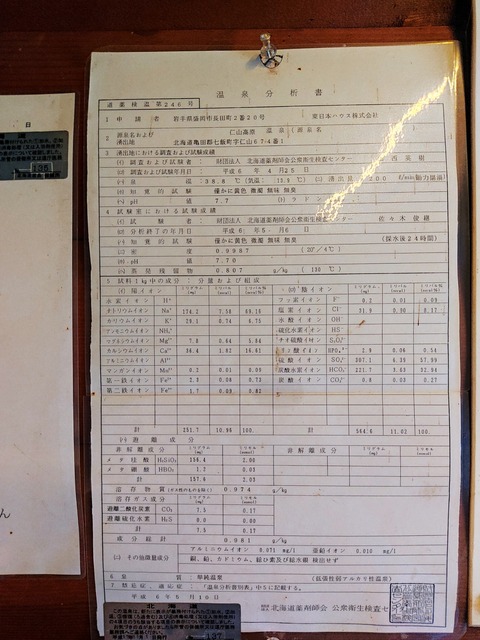 温泉分析書
道薬検温第246号
1 申請者 岩手県盛岡市長田町2番20号 東日本ハウス株式会社
2 源泉名および湧出地 仁山高原 温泉(源泉名
北海道亀田郡七飯町字仁山674番1
3 湧出地における調査および試験成績
(イ) 調査および試験者 財団法人 北海道薬剤師会公衆衛生検査センター 西 英樹
(ロ) 調査および試験年月日 平成6年4月25日
(ハ) 泉温 38.8 ℃ (気温: ℃) (ニ) 湧出量 200 ℓ/min(動力揚湯)
(ホ) 知覚的試験 僅かに黄色 微濁 無味 無臭
(ヘ) pH値 7.7 (ト) ラドン
4 試験室における試験成績
(イ) 試験者 財団法人 北海道薬剤師会公衆衛生検査センター 佐々木俊雄
(ロ) 分析終了の年月日 平成6年5月6日
(ハ) 知覚的試験 僅かに黄色 微濁 無味 無臭 (採水後24時間)
(ニ) 密度 0.9987 (20°/4℃)
(ホ) pH値 7.70
(ヘ) 蒸発残留物 0.807 g/kg (130℃)
5 試料1kg中の成分・分量および組成
(イ) 陽イオン ミリグラム(mg) ミリバル(mval) ミリバル%(mval%) (ロ) 陰イオン ミリグラム(mg) ミリバル(mval) ミリバル%(mval%)
水素イオン H⁺ フッ素イオン F⁻ 0.2 0.01 0.09
ナトリウムイオン Na⁺ 174.2 7.58 69.16 塩素イオン Cl⁻ 31.9 0.90 8.17
カリウムイオン K⁺ 29.1 0.74 6.75 水酸イオン OH⁻
アンモニウムイオン NH₄⁺ 硫化水素イオン HS⁻
マグネシウムイオン Mg²⁺ 7.8 0.64 5.84 チオ硫酸イオン S₂O₃²⁻
カルシウムイオン Ca²⁺ 36.4 1.82 16.61 リン酸イオン HPO₄²⁻ 2.9 0.06 0.54
アルミニウムイオン Al³⁺ 硫酸イオン SO₄²⁻ 307.1 6.39 57.99
マンガンイオン Mn²⁺ 0.2 0.01 0.09 炭酸水素イオン HCO₃⁻ 221.7 3.63 32.94
第一鉄イオン Fe²⁺ 2.3 0.08 0.73 炭酸イオン CO₃²⁻ 0.8 0.03 0.27
第二鉄イオン Fe³⁺ 1.7 0.09 0.82
計 251.7 10.96 100. 計 564.6 11.02 100.
(ハ) 遊離成分
非解離成分 ミリグラム(mg) ミリモル 非解離成分 ミリグラム(mg) ミリモル
メタ珪酸 H₂SiO₃ 156.4 2.00
メタ硼酸 HBO₂ 1.2 0.03
計 157.6 2.03
溶存物質(ガス性のものを除く) 0.974 g/kg
溶存ガス成分 ミリグラム(mg) ミリモル
遊離二酸化炭素 CO₂ 7.5 0.17
遊離硫化水素 H₂S 0.0 0.00
計 7.5 0.17
成分総計 0.981 g/kg
(ニ) その他微量成分 アルミニウムイオン 0.071 mg/l 亜鉛イオン 0.010 mg/l
銅、鉛、カドミウム、総ひ素及び総水銀 検出せず
6 泉質 単純温泉 (低張性弱アルカリ性温泉)
7 禁忌症、適応症 「温泉分析別表」中5に記載する。
平成6年5月10日
財団法人 北海道薬剤師会 公衆衛生検査セ
北海道
137
136
日
ん